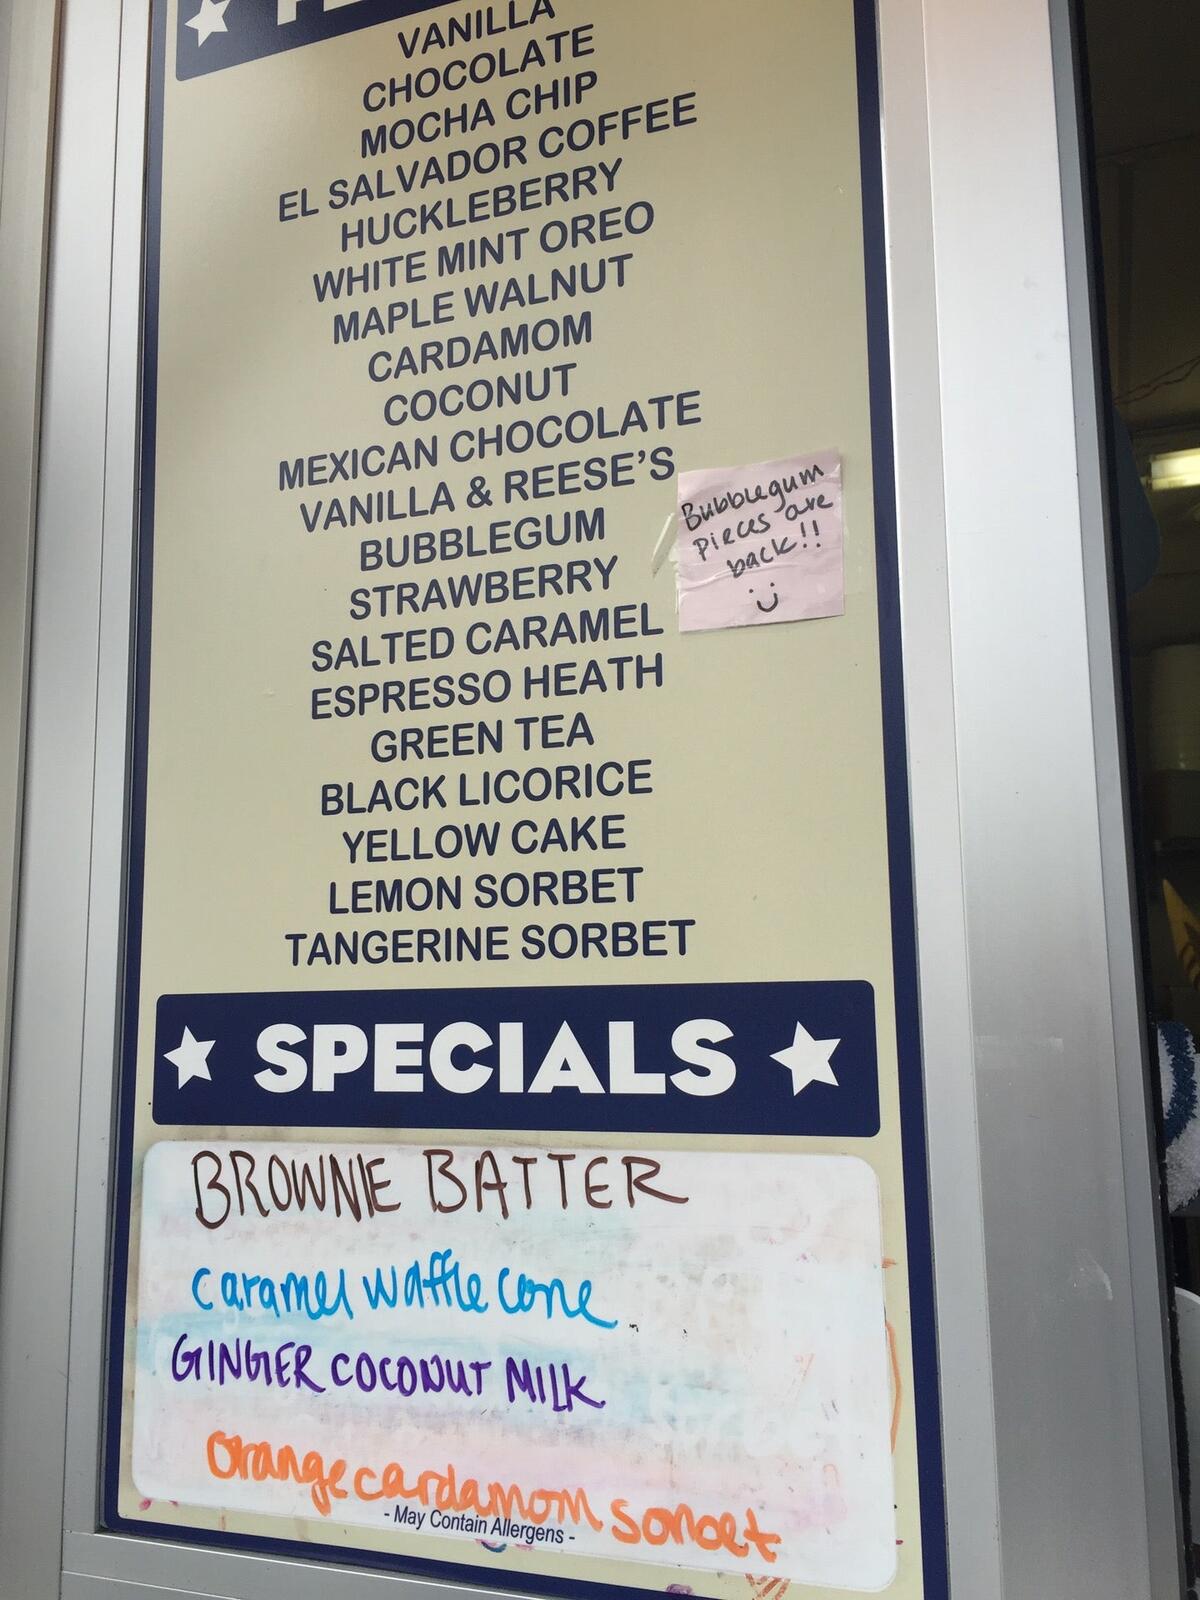 VANILLA
CHOCOLATE
MOCHA CHIP
EL SALVADOR COFFEE
HUCKLEBERRY
WHITE MINT OREO
MAPLE WALNUT
CARDAMOM
COCONUT
MEXICAN CHOCOLATE
VANILLA & REESE'S
BUBBLEGUM
STRAWBERRY
SALTED CARAMEL
ESPRESSO HEATH
GREEN TEA
BLACK LICORICE
YELLOW CAKE
LEMON SORBET
TANGERINE SORBET
Bubblegum
pieces are
back!!
SPECIALS
BROWNIE BATTER
caramel waffle cone
GINGER COCONUT MILK
orange cardamom sorbet
- May Contain Allergens -